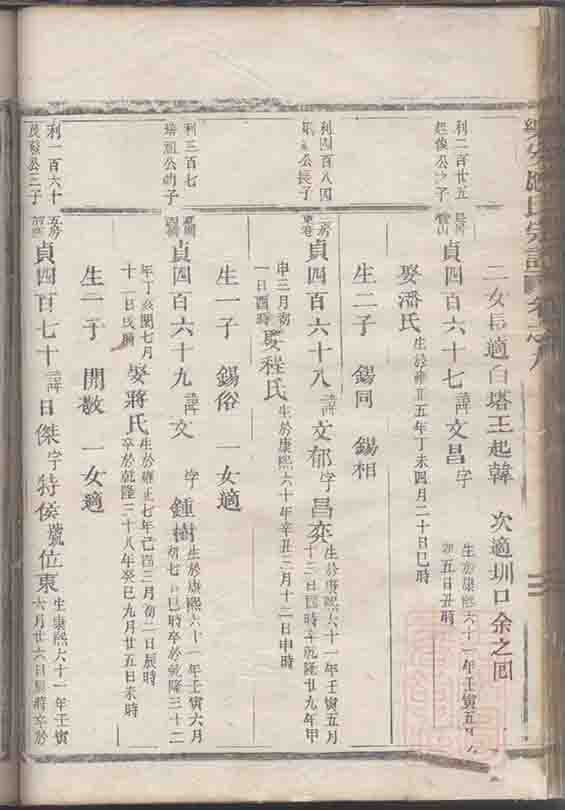 二女長適白塔王起韓 次適圳口余之回
利二百廿五
貞四百六十七 諱文昌 字
生於康熙六十一年壬寅五月
五日丑時
娶潘氏 生於雍正五年丁未四月二十日巳時
生二子 錫同 錫相
利四百八四
公長子
貞四百六十八 諱文郁 字昌奕
生於康熙六十一年壬寅五月
十三日 時卒乾隆廿九年甲
申三月初
一日酉時
娶程氏 生於康熙六十年辛丑三月十二日申時
生一子 錫俗 一女適
利三百七
公幼子
貞四百六十九 諱文 字 鍾樹
生於康熙六十一年壬寅六月
初七日巳時卒於乾隆三十二
年丁亥閏七月
十一日戌時
娶蔣氏
生於雍正七年己酉三月初二日辰時
卒於乾隆三十八年癸巳九月廿五日未時
生一子 開教 一女適
利一百六十
茂 公三子
五房
貞四百七十 諱日傑 字特侯 號位東
生康熙六十一年壬寅
六月廿六日 時卒於